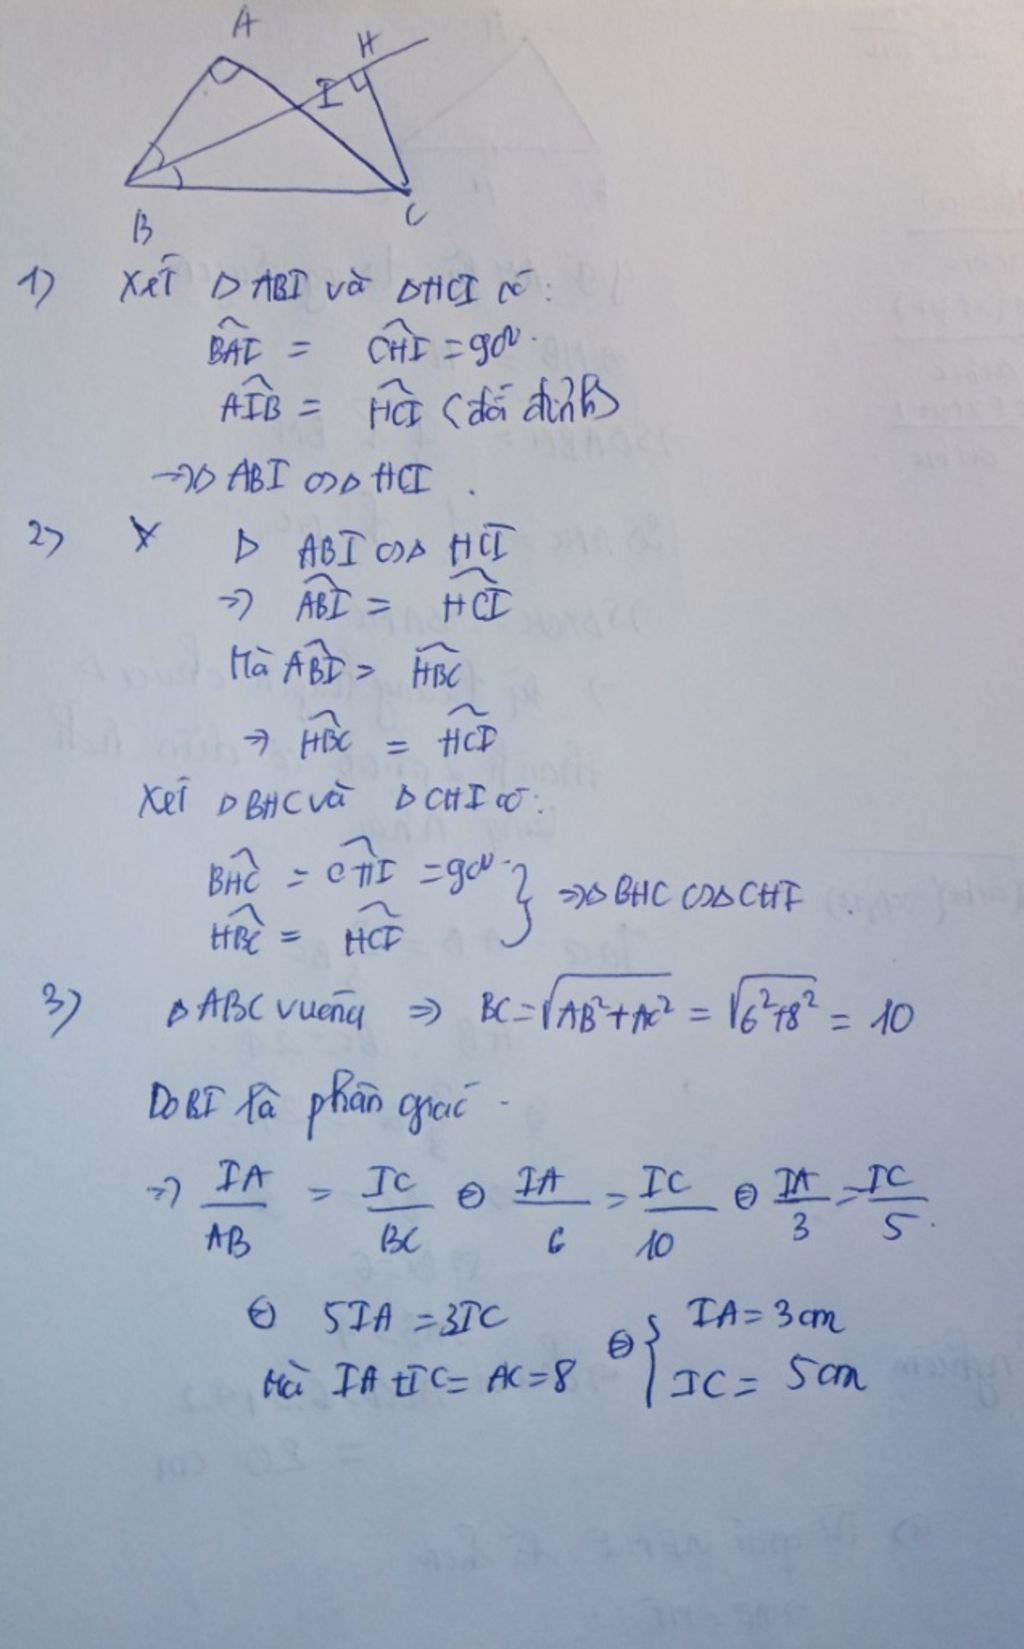 A
H
I
B
C
1) Xét Δ ABI và ΔHCI có:
BAI = CHI = 90°
AIB = HCI (đối đỉnh)
→ Δ ABI ∽ Δ HCI .
2) Δ ABI ∽ Δ HCI
⇒ ABI = HCI
Mà ABI = HBC
⇒ HBC = HCI
Xét ΔBHC và ΔCHI có:
BHC = CHI = 90° } ⇒ Δ BHC ∽ Δ CHI .
HBC = HCI
3) Δ ABC vuông ⇒ BC = √AB²+AC² = √6²+8² = 10
Do BI là phân giác
⇒ IA/AB = IC/BC ⇔ IA/6 = IC/10 ⇔ IA/3 = IC/5.
⇔ 5IA = 3IC ⇔ { IA = 3cm
Mà IA + IC = AC = 8 IC = 5cm